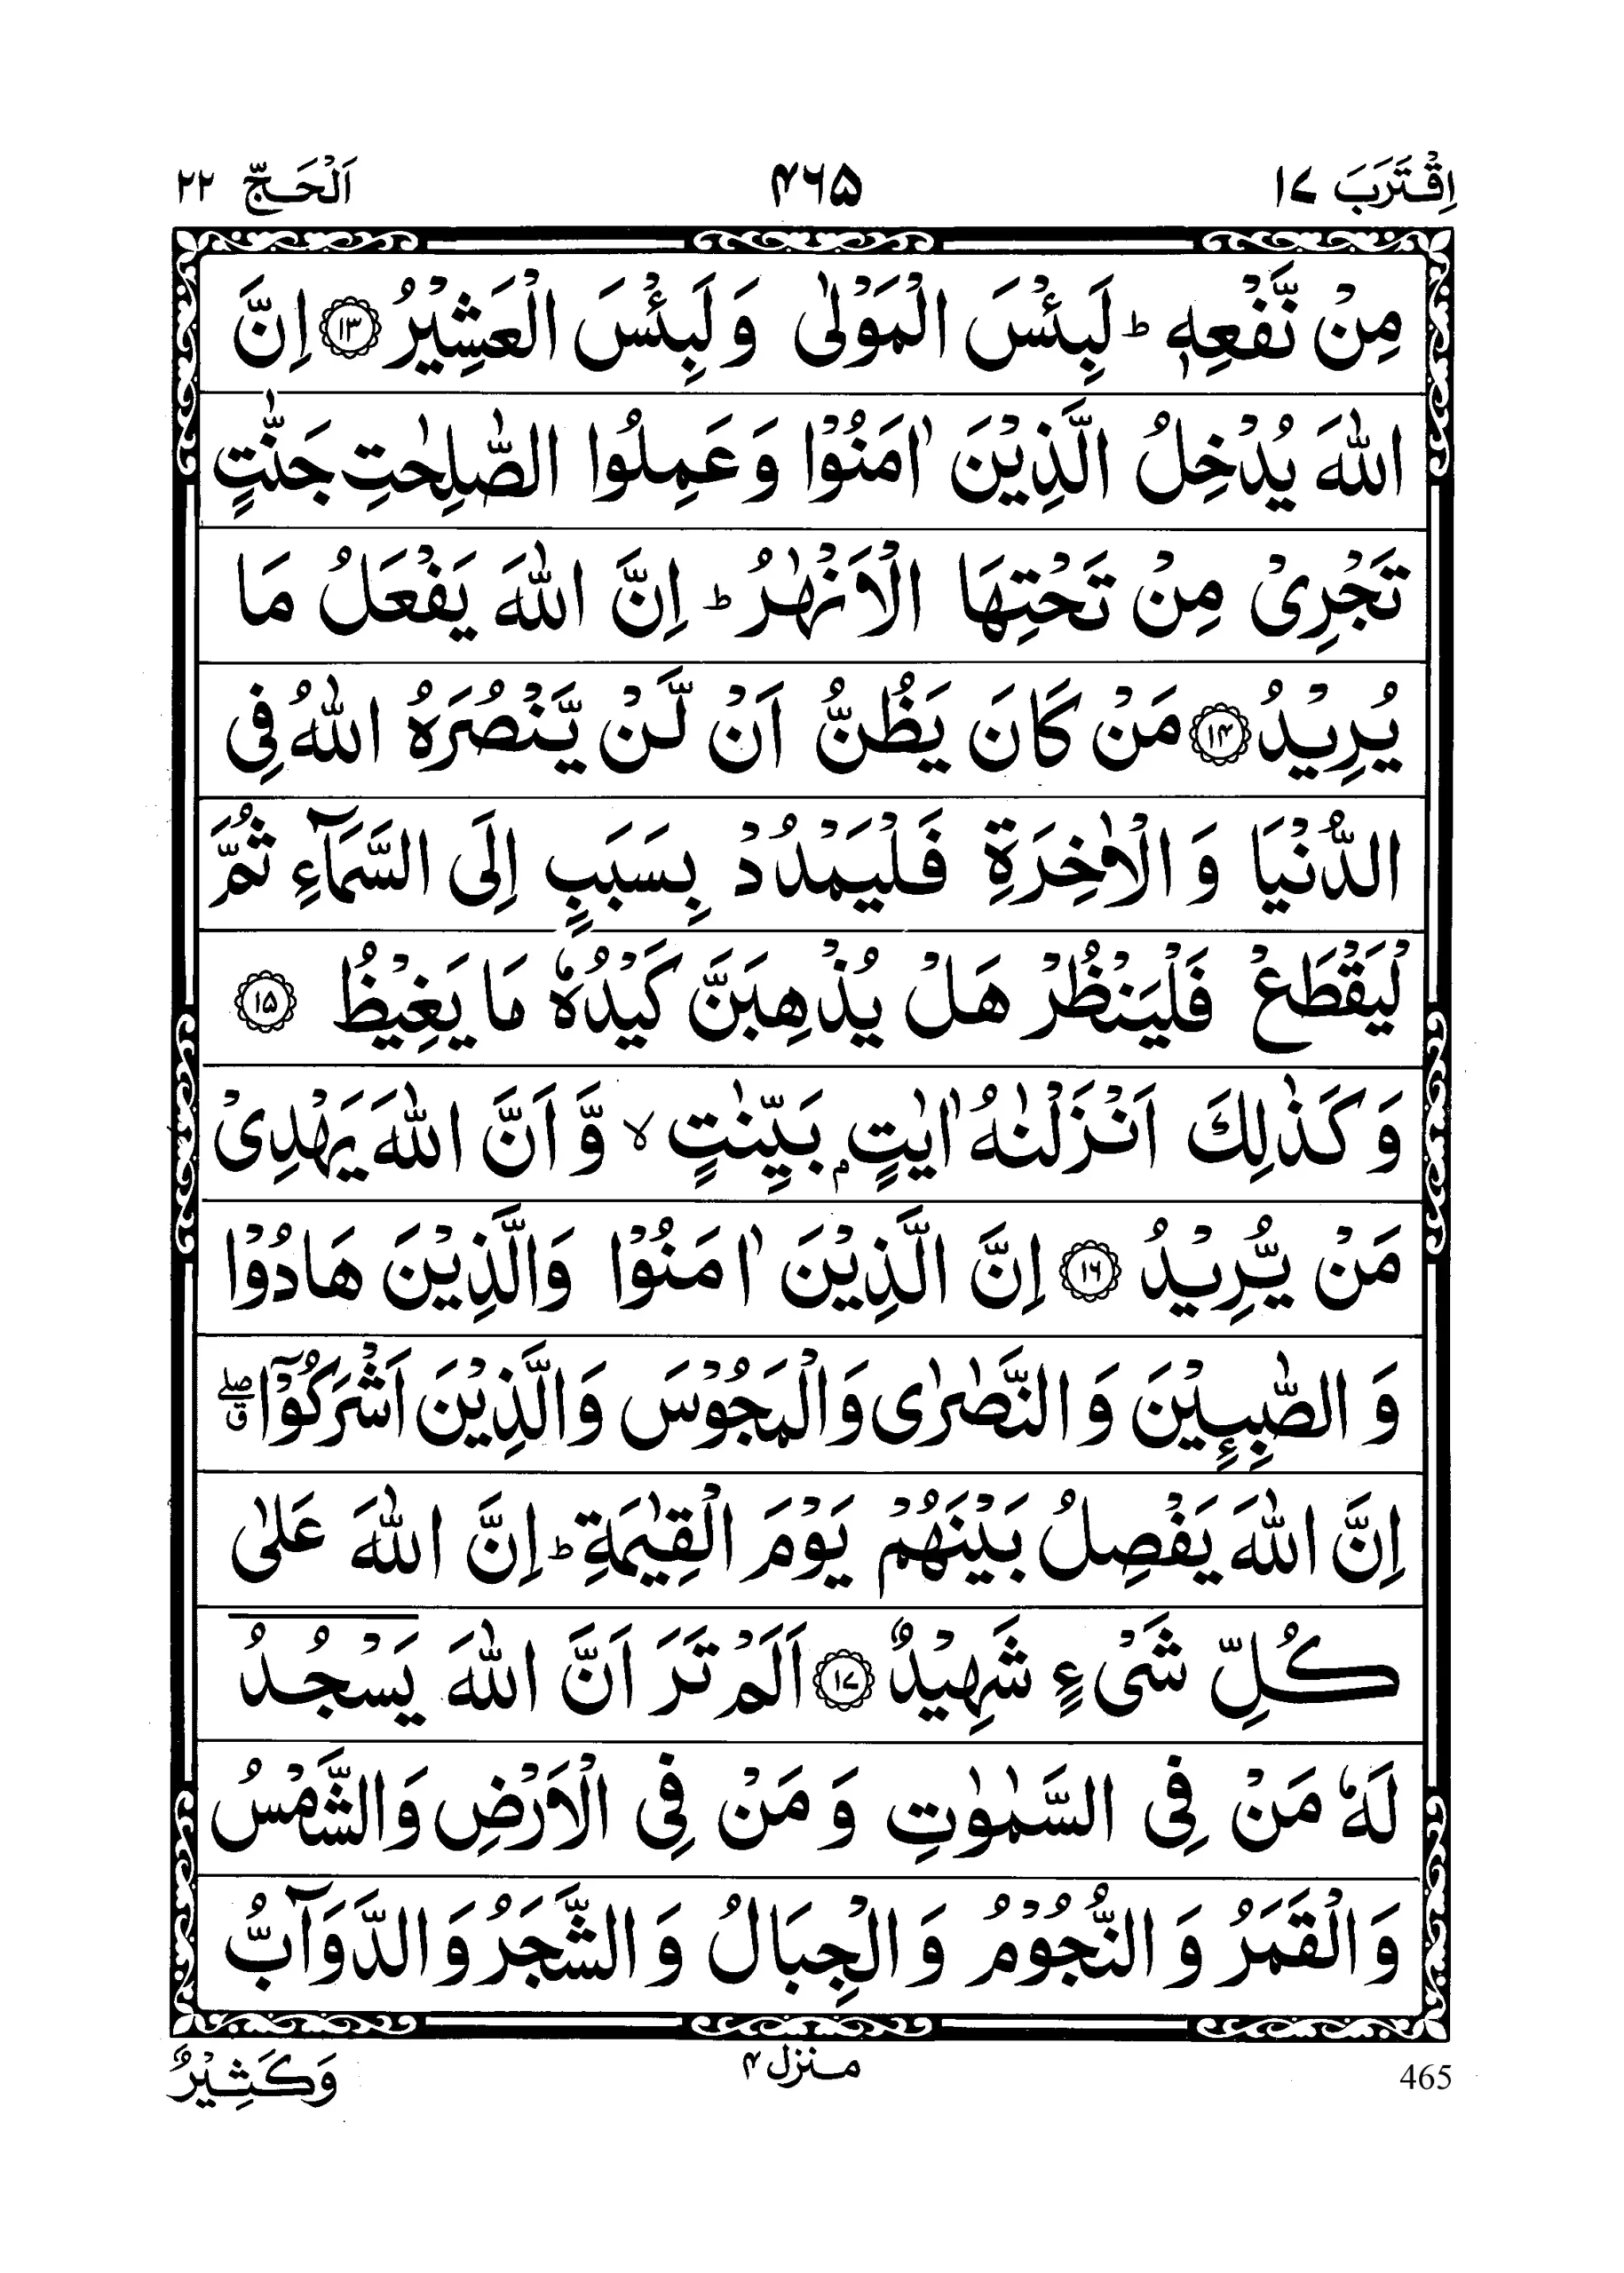 اِقْتَرَبَ ۱۷ ۴۶۵ اَلْحَـجّ ۲۲
مِنْ نَّفْعِهٖ ؕ لَبِئْسَ الْمَوْلٰى وَ لَبِئْسَ الْعَشِيْرُ ۝۱۳ اِنَّ
اللّٰهَ يُدْخِلُ الَّذِيْنَ اٰمَنُوْا وَ عَمِلُوا الصّٰلِحٰتِ جَنّٰتٍ
تَجْرِىْ مِنْ تَحْتِهَا الْاَنْهٰرُ ؕ اِنَّ اللّٰهَ يَفْعَلُ مَا
يُرِيْدُ ۝۱۴ مَنْ كَانَ يَظُنُّ اَنْ لَّنْ يَّنْصُرَهُ اللّٰهُ فِى
الدُّنْيَا وَ الْاٰخِرَةِ فَلْيَمْدُدْ بِسَبَبٍ اِلَى السَّمَآءِ ثُمَّ
لْيَقْطَعْ فَلْيَنْظُرْ هَلْ يُذْهِبَنَّ كَيْدُهٗ مَا يَغِيْظُ ۝۱۵
وَ كَذٰلِكَ اَنْزَلْنٰهُ اٰيٰتٍۭ بَيِّنٰتٍ ۙ وَّ اَنَّ اللّٰهَ يَهْدِىْ
مَنْ يُّرِيْدُ ۝۱۶ اِنَّ الَّذِيْنَ اٰمَنُوْا وَالَّذِيْنَ هَادُوْا
وَ الصّٰبِـِٕيْنَ وَ النَّصٰرٰى وَالْمَجُوْسَ وَالَّذِيْنَ اَشْرَكُوْۤا ۖۗ
اِنَّ اللّٰهَ يَفْصِلُ بَيْنَهُمْ يَوْمَ الْقِيٰمَةِ ؕ اِنَّ اللّٰهَ عَلٰى
كُلِّ شَىْءٍ شَهِيْدٌ ۝۱۷ اَلَمْ تَرَ اَنَّ اللّٰهَ يَسْجُدُ
لَهٗ مَنْ فِى السَّمٰوٰتِ وَ مَنْ فِى الْاَرْضِ وَالشَّمْسُ
وَالْقَمَرُ وَ النُّجُوْمُ وَ الْجِبَالُ وَ الشَّجَرُ وَ الدَّوَآبُّ
465 مـنزل ۴ وَكَـثِـيْـرٌ